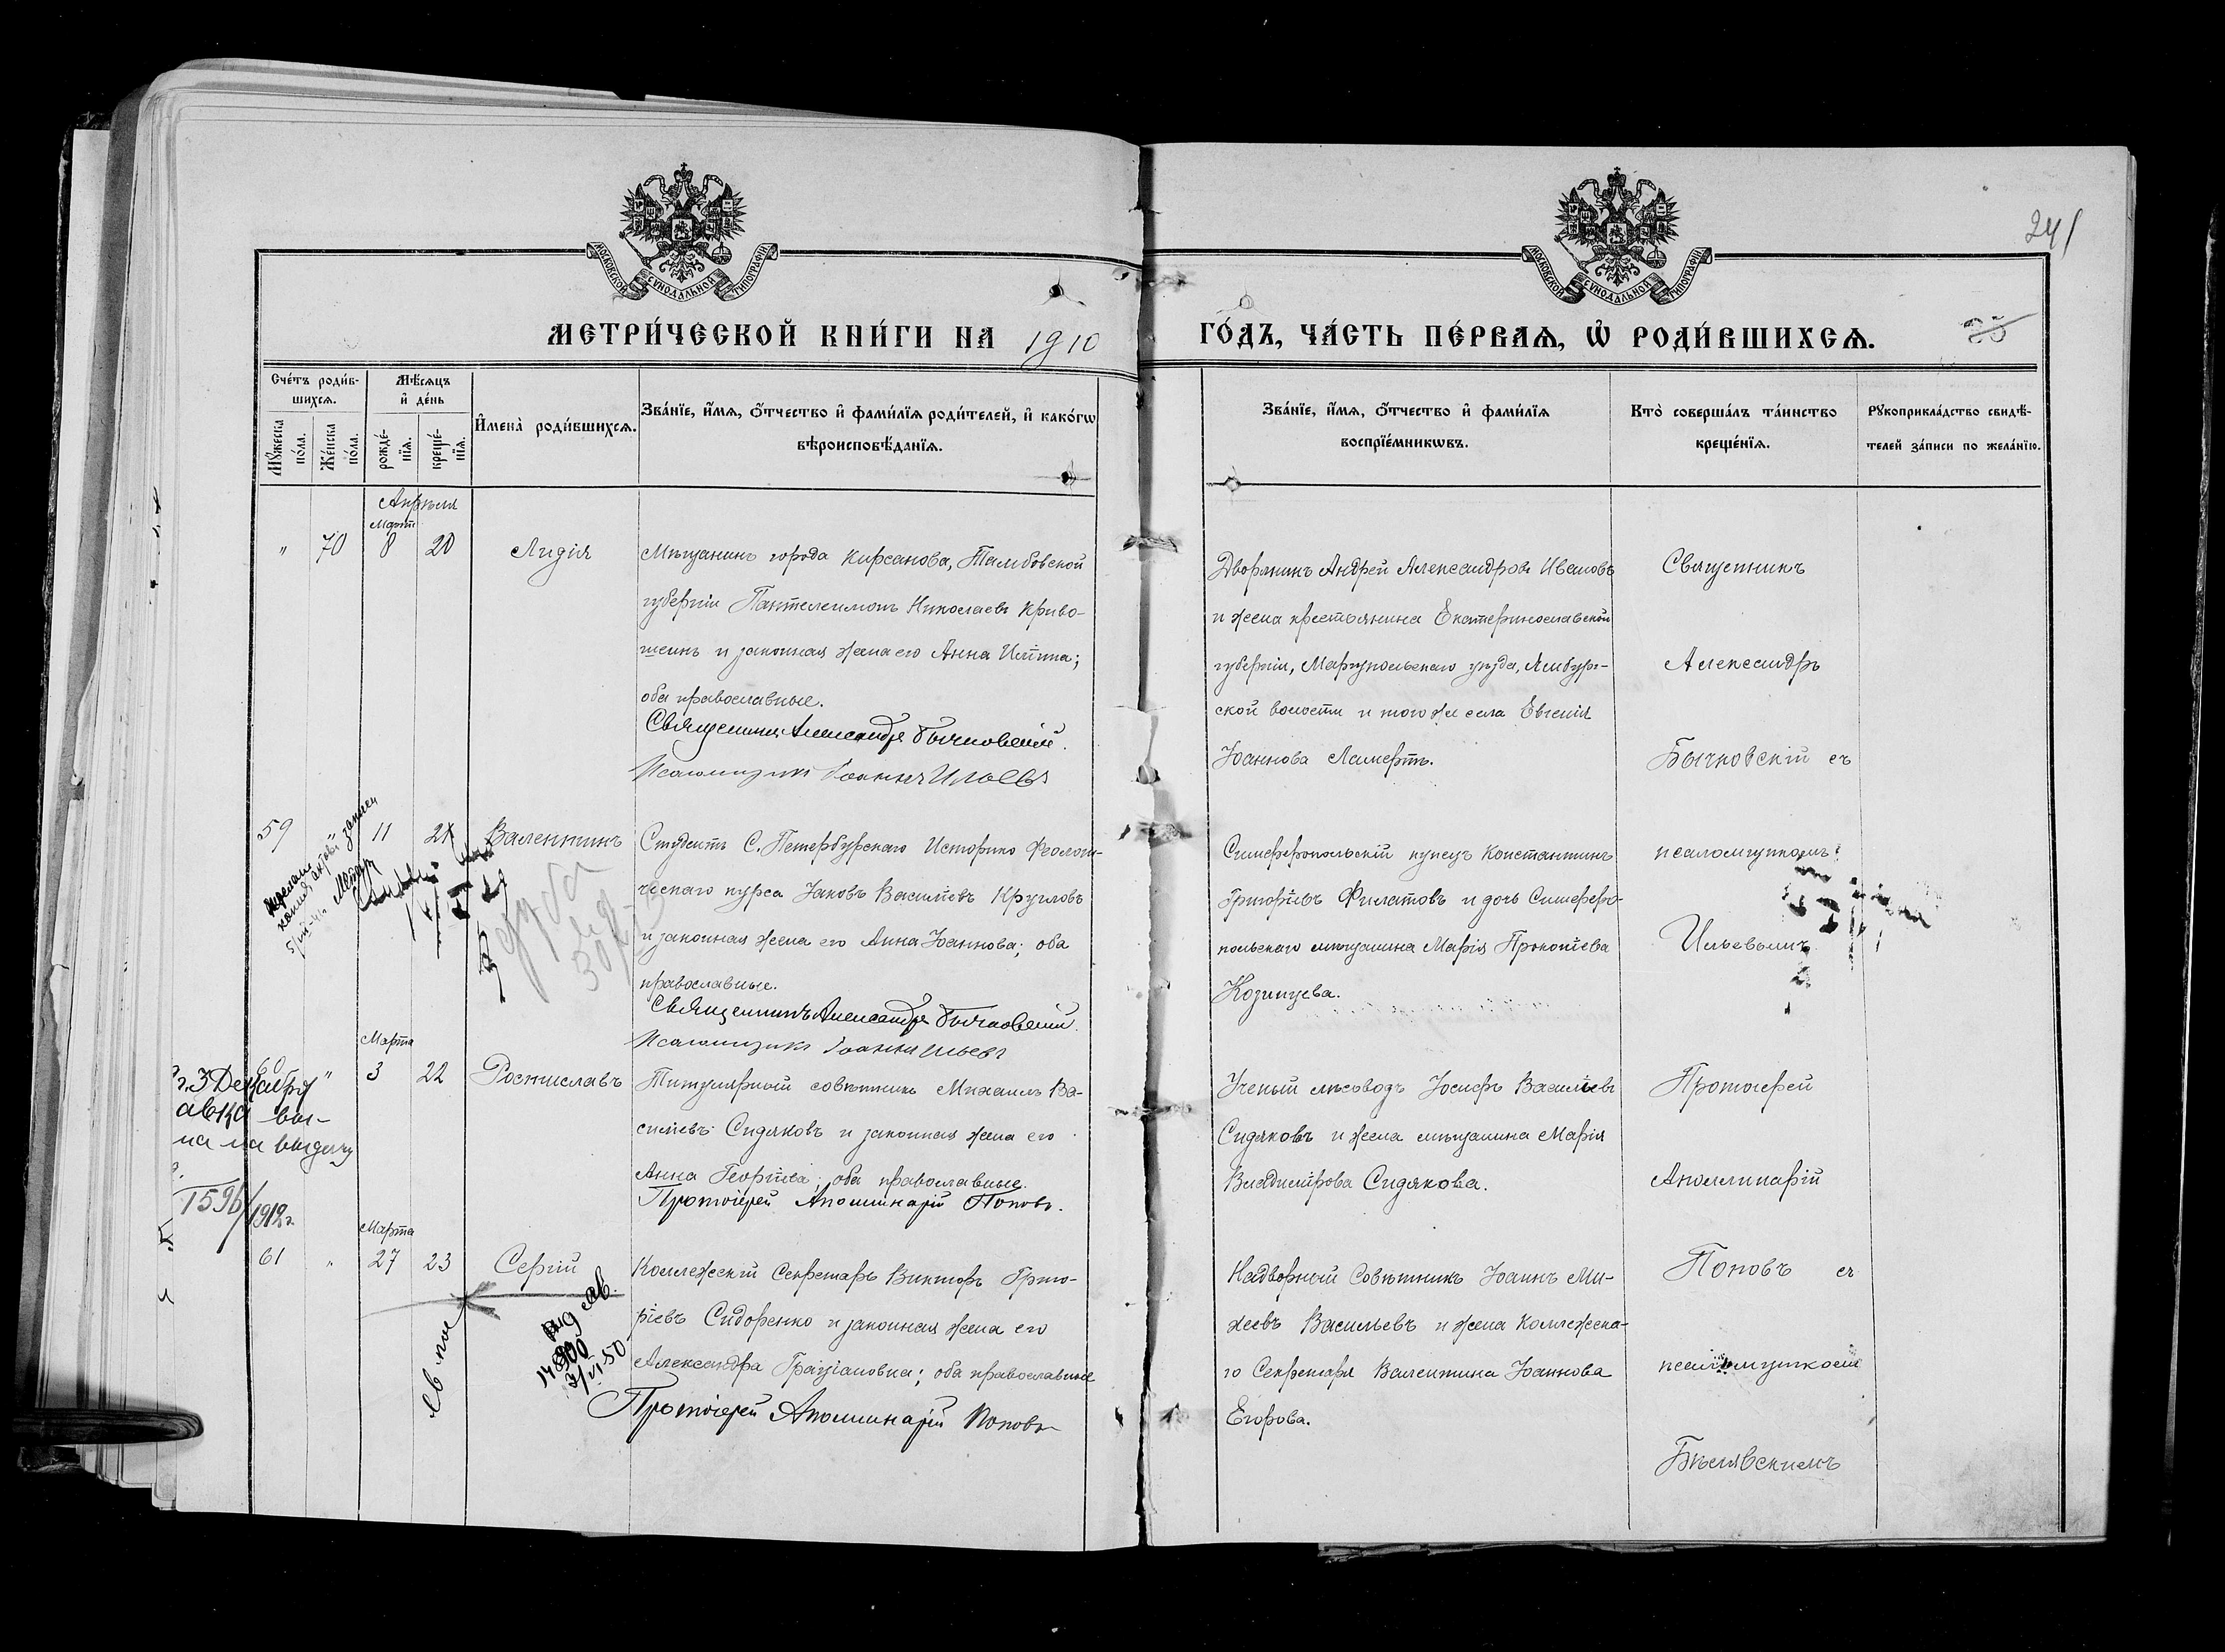 241
МОСКОВСКОЙ СѴНОДАЛЬНОЙ ТИПОГРАФІИ
МОСКОВСКОЙ СѴНОДАЛЬНОЙ ТИПОГРАФІИ
МЕТРИ́ЧЕСКОЙ КНИ́ГИ НА 1910
ГО́ДЪ, ЧА́СТЬ ПЕ́РВАѦ, Ѡ҆ РОДИ́ВШИХСѦ.
25
Сче́тъ роди́в-
шихсѧ.
Мꙋ́жеска
по́ла.
Же́нска
по́ла.
Мѣ́сѧцъ
и҆ де́нь
рожде́-
нїѧ.
креще́-
нїѧ.
И҆мена̀ роди́вшихсѧ.
Зва́нїе, и҆́мѧ, ѻ҆́тчество и҆ фами́лїѧ роди́телей, и҆ како́гѡ
вѣроисповѣ́данїѧ.
Зва́нїе, и҆́мѧ, ѻ҆́тчество и҆ фами́лїѧ
воспрїе́мникѡвъ.
Кто̀ соверша́лъ та́инство
креще́нїѧ.
Рꙋкоприкла́дство свидѣ́-
телей за́писи по жела́нїю.
Апрѣля
Март
" 70 8 20 Лидія
Мѣщанинъ города Кирсанова, Тамбовской
губерніи Пантелеимонъ Николаевъ Криво-
шеинъ и законная жена его Анна Ильина;
оба православные.
Священникъ Александръ Бычковскій.
Псаломщикъ Іоаннъ Ильевъ
Дворянинъ Андрей Александровъ Ивановъ
и жена крестьянина Екатеринославской
губерніи, Маріупольскаго уѣзда,
ской волости и того же села Евгенія
Іоаннова Ламертъ.
Священникъ
Александръ
Бычковскій съ
псаломщикомъ
Ильевымъ
59 11 21 Валентинъ
Студентъ С. Петербурскаго Историко Феологи-
ческаго курса Іаковъ Васильевъ Кругловъ
и законная жена его Анна Іоаннова; оба
православные.
Священникъ Александръ Бычковскій.
Псаломщикъ Іоаннъ Ильевъ
Симферопольскій купецъ Константинъ
Григорьевъ Филатовъ и дочь Симферо-
польскаго мѣщанина Марія Прокопіева
Козинцева.
Марта
60 " 3 22 Ростиславъ
Титулярный совѣтникъ Михаилъ Ва-
сильевъ Сидяковъ и законная жена его
Анна Георгіева; оба православные.
Протоіерей Аполлинарій Поповъ.
Ученый лѣсоводъ Іосифъ Васильевъ
Сидяковъ и жена мѣщанина Марія
Владимірова Сидякова.
Протоіерей
Аполлинарій
Поповъ съ
псаломщикомъ
Бѣлявскимъ
3 Декабря
вы-
на выдачу
1596/1912 г.
Марта
61 " 27 23 Сергій
Коллежскій Секретарь Викторъ Григо-
ріевъ Сидоренко и законная жена его
Александра Граціановна; оба православные
Протоіерей Аполлинарій Поповъ
Надворный Совѣтникъ Іоаннъ Ми-
хеевъ Васильевъ и жена Коллежска-
го Секретаря Валентина Іоаннова
Егорова.